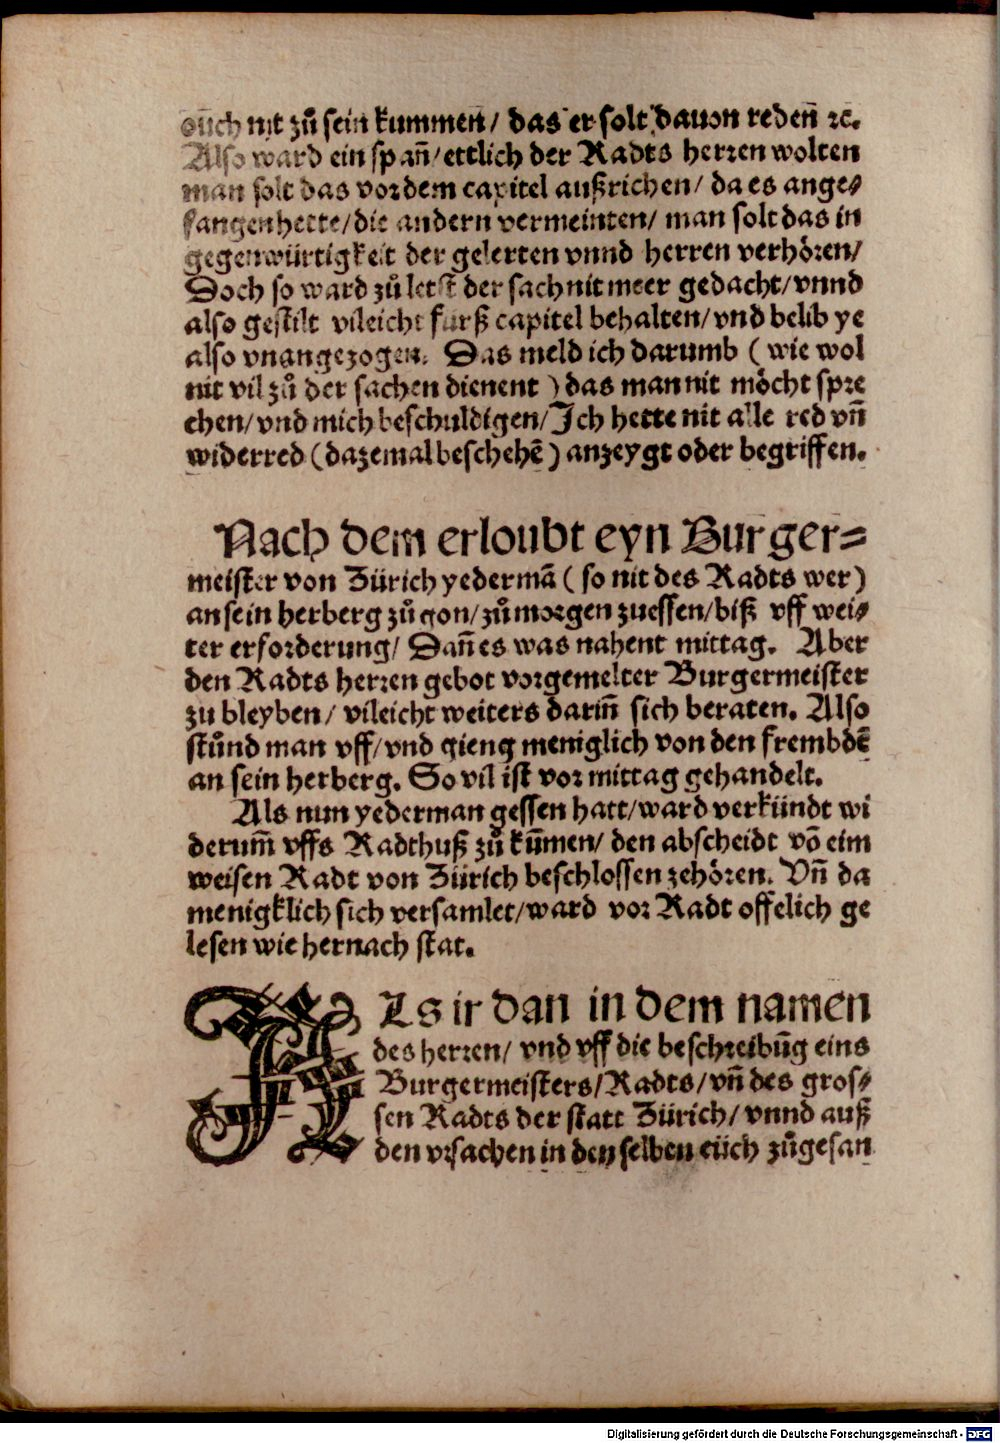 ouch nit zů sein kummen / das er solt dauon reden̄ ꝛc.
Also ward ein span̄ / ettlich der Radts herꝛen wolten
man solt das voꝛ dem capitel außrichen / da es ange⸗
fangen hette / die andern vermeinten / man solt das in
gegenwürtigkeit der gelerten vnnd herren verhöꝛen /
Doch so ward zů letst der sach nit meer gedacht / vnnd
also gestilt vileicht fürß capitel behalten / vnd belib ye
also vnangezogen. Das meld ich darumb ( wie wol
nit vil zů der sachen dienent ) das man nit möcht spꝛe
chen / vnd mich beschuldigen / Ich hette nit alle red vn̄
widerred ( dazemal beschehē ) anzeygt oder begriffen.
Nach dem erloubt eyn Burger⸗
meister von Zürich yedermā ( so nit des Radts wer )
an sein herberg zů gon / zů moꝛgen zuessen / biß vff wei⸗
ter erfoꝛderung / Dan̄ es was nahent mittag. Aber
den Radts herꝛen gebot voꝛgemelter Burgermeister
zu bleyben / vileicht weiters darin̄ sich beraten. Also
stůnd man vff / vnd gieng meniglich von den frembdē
an sein herberg. So vil ist voꝛ mittag gehandelt.
Als nun yederman gessen hatt / ward verkündt wi
derum̄ vffs Radthuß zů kūmen / den abscheidt vō eim
weisen Radt von Zürich beschlossen zehöꝛen. Vn̄ da
menigklich sich versamlet / ward voꝛ Radt offelich ge
lesen wie hernach stat.
ALs ir dan in dem namen
des herꝛen / vnd vff die beschreibūg eins
Burgermeisters / Radts / vn̄ des gros⸗
sen Radts der statt Zürich / vnnd auß
den vꝛsachen in den selben eüch zůgesan
Digitalisierung gefördert durch die Deutsche Forschungsgemeinschaft - DFG